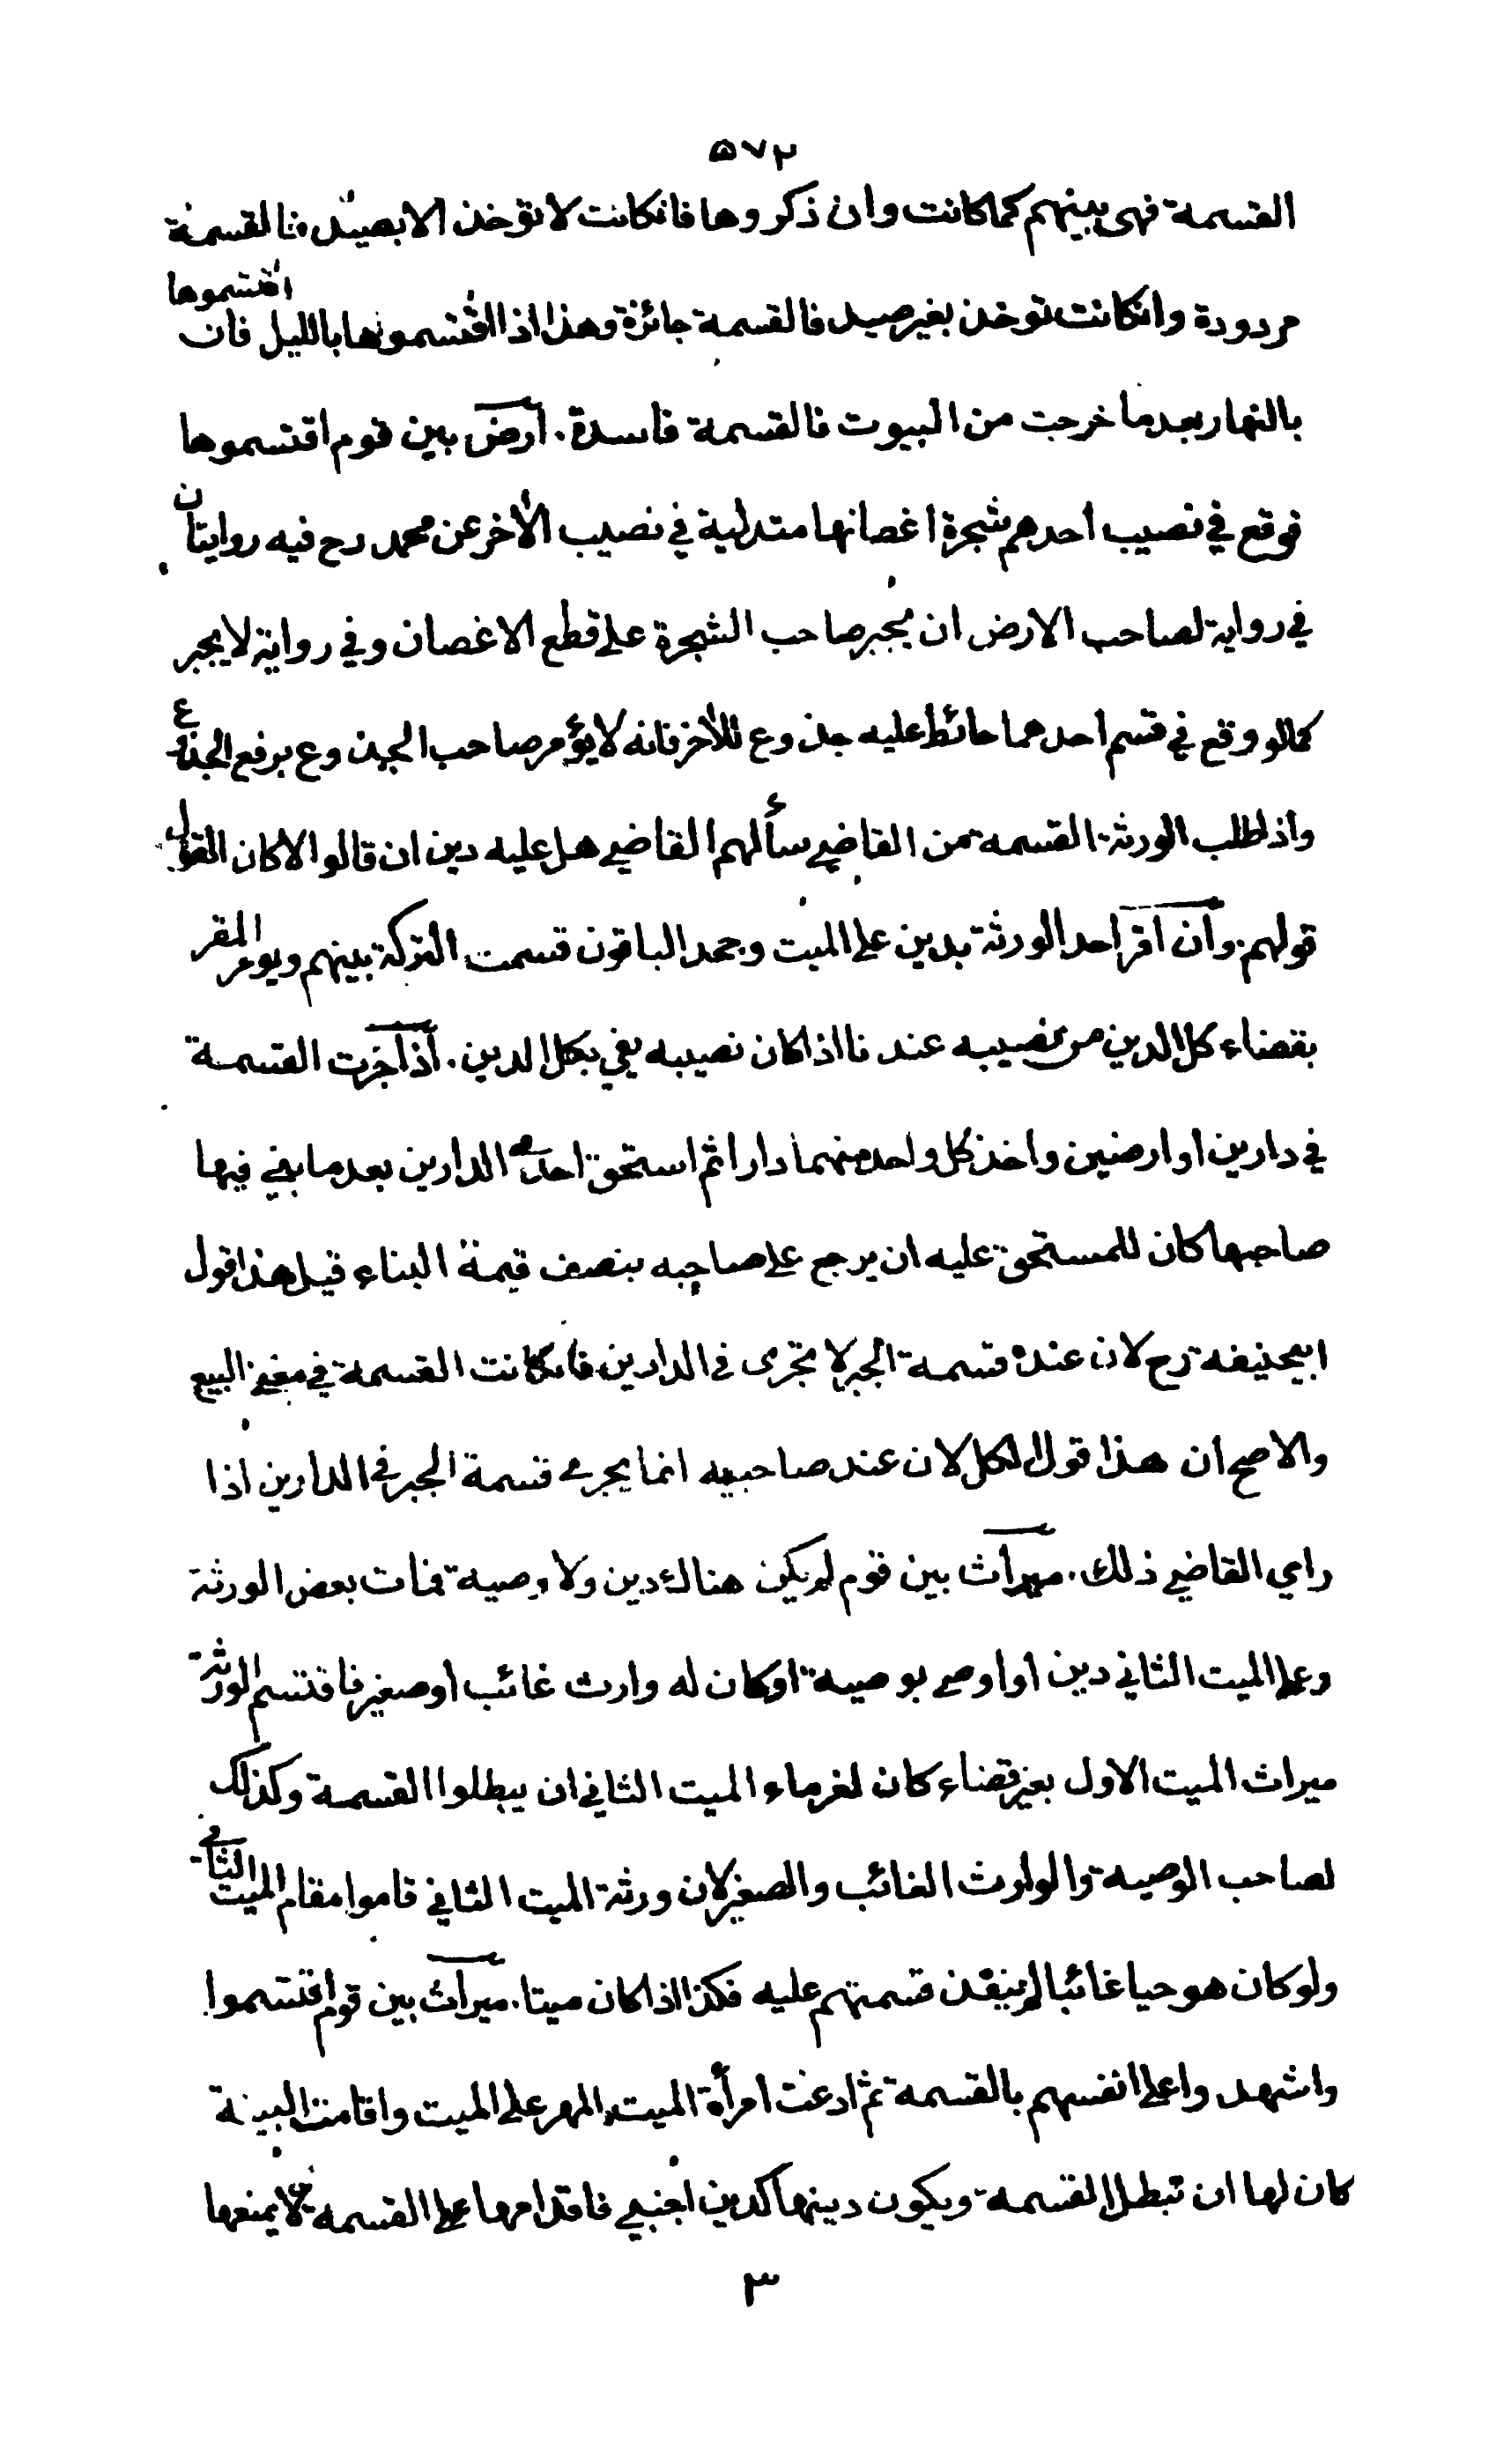 ٥٧٢
القسمة فهى بينهم كما كانت وان ذكروها فانكانت لا تؤخذ الا بصيد فالقسمة
مردودة وانكانت توخذ بغير صيد فالقسمة جائزة وهذا اذا اقتسموها بالليل فان اقتسموها
بالنهار بعدما خرجت من البيوت فالقسمة فاسدة . ارض بين قوم اقتسموها
فوقع في نصيب احدهم شجرة اغصانها متدلية في نصيب الآخر عن محمد رح فيه روايتان
في رواية لصاحب الارض ان يجبر صاحب الشجرة على قطع الاغصان وفي رواية لا يجبر
كما لو وقع في قسم احدهما حائط عليه جذوع للآخر فانه لا يؤمر صاحب الجذوع برفع الجذوع
واذا طلب الورثة القسمة من القاضي سألهم القاضي هل عليه دين ان قالوا لا كان القول
قولهم . وان اقر احد الورثة بدين على الميت وجحد الباقون قسمت التركة بينهم ويومر المقر
بقضاء كل الدين من نصيبه عندنا اذا كان نصيبه يفي بكل الدين . اذا جرت القسمة
في دارين او ارضين واخذ كل واحد منهما دارا ثم استحق احدى الدارين بعد ما بنى فيها
صاحبها كان للمستحق عليه ان يرجع على صاحبه بنصف قيمة البناء قيل هذا قول
ابيحنيفة رح لان عنده قسمة الجبر لا تجرى فى الدارين فانكانت القسمة في معنى البيع
والاصح ان هذا قول الكل لان عند صاحبيه انما يجرى قسمة الجبر في الدارين اذا
راى القاضي ذلك . ميراث بين قوم لم يكن هناك دين ولا وصية فمات بعض الورثة
وعلى الميت الثاني دين او اوصى بوصية او كان له وارث غائب او صغير فاقتسم الورثة
ميراث الميت الاول بغير قضاء كان لغرماء الميت الثاني ان يبطلوا القسمة وكذلك
لصاحب الوصية والوارث الغائب والصغير لان ورثة الميت الثاني قاموا مقام الميت الثاني
ولو كان هو حيا غائبا لم ينفذ قسمتهم عليه فكذا اذا كان ميتا . ميراث بين قوم اقتسموا
واشهدوا على انفسهم بالقسمة ثم ادعت امرأة الميت المهر على الميت واقامت البينة
كان لها ان تبطل القسمة ويكون دينها كدين اجنبي فاقدامها على القسمة لا يمنعها
٣